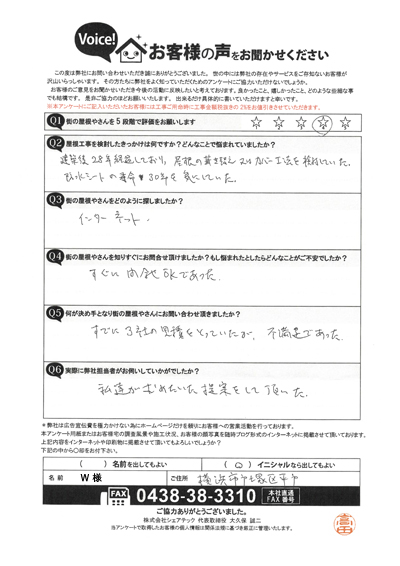 Voice!
お客様の声をお聞かせください
この度は弊社にお問い合わせいただき誠にありがとうございました。世の中には弊社の存在やサービスをご存知ないお客様が
沢山いらっしゃいます。その方たちに弊社をよく知っていただくためのアンケートにご協力いただけないでしょうか。
お客様のご意見をお聞かせいただき今後の活動に反映したいと考えております。良かったこと、嬉しかったこと、どのような些細な事
でも結構です。是非ご協力のほどお願いいたします。出来るだけ具体的に書いていただけますと幸いです。
※本アンケートにご記入いただいたお客様には工事ご用命時に工事金額総額の2%をお値引きさせていただきます。
Q1 街の屋根やさんを5段階で評価をお願いします
Q2 屋根工事を検討したきっかけは何ですか？どんなことで悩まれていましたか？
建築後28年経過しており、屋根の葺き替え又はカバー工法を検討していた。
防水シートの寿命30年を気にしていた。
Q3 街の屋根やさんをどのように探しましたか？
インターネット.
Q4 街の屋根やさんを知りすぐにお問合せ頂けましたか？もし悩まれたとしたらどんなことがご不安でしたか？
すぐに問合せOKであった.
Q5 何が決め手となり街の屋根やさんにお問い合わせ頂きましたか？
すでに3社の見積をとっていたが、不満足であった.
Q6 実際に弊社担当者がお伺いしていかがでしたか？
私達が求めたいた提案をして頂いた.
＊弊社は広告宣伝費を極力かけない為にホームページだけを頼りにお客様への営業活動を行っております。
本アンケート用紙またはお客様宅の調査風景や施工状況、お客様の顔写真を随時ブログ形式のインターネットに掲載させて頂いております。
上記内容をインターネットや印刷物に掲載させて頂いてもよろしいでしょうか？
下記の中から〇印をお付け下さい。
（　）名前を出してもよい （○）イニシャルなら出してもよい
名前 W様 ご住所 横浜市戸塚区平戸
FAX 0438-38-3310 本社直通 FAX番号
ご協力ありがとうございました。
株式会社シェアテック 代表取締役 大久保 誠二
当アンケートで取得したお客様の個人情報は関係法規に基づき厳正に管理いたします。